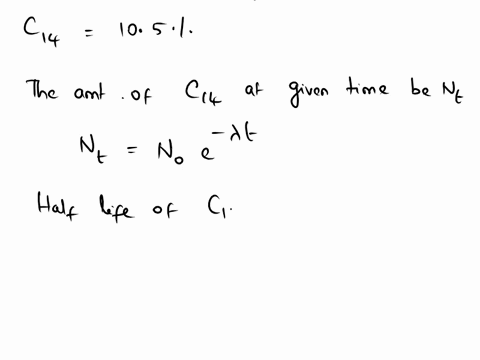 C₁₄ = 10.5 %.
The amt. of C₁₄ at given time be Nₜ
Nₜ = N₀ e^{-λt}
Half life of C₁.